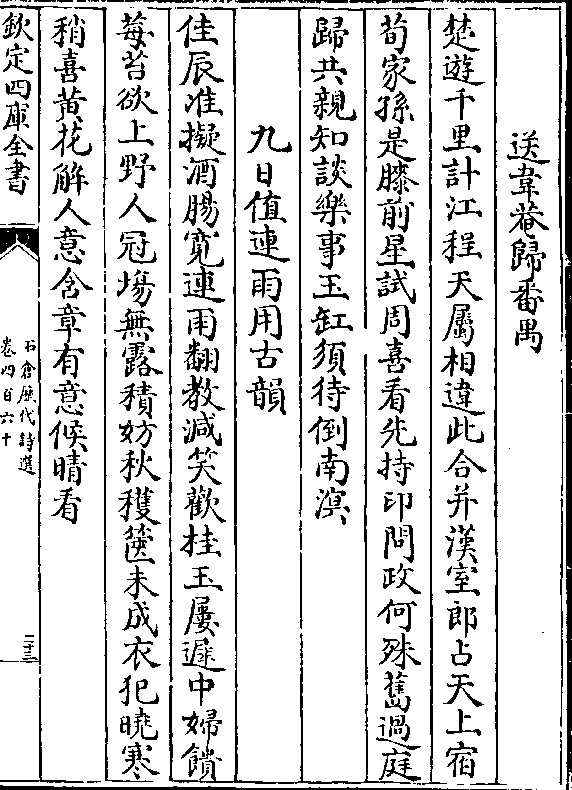 送韋菴歸番禺
楚遊千里計江程天屬相違此合并漢室郎占天上宿
荀家孫是膝前星試周喜看先持印問政何殊舊過庭
歸共親知談樂事玉缸須待倒南溟
九日值連雨用古韻
佳辰准擬酒腸寬連雨翻教減笑歡桂玉屢遲中婦饋
莓苔欲上野人冠塲無露積妨秋穫篋未成衣犯曉寒
稍喜黄花解人意含章有意候晴看
欽定四庫全書
石倉歷代詩選
卷四百六十
二十三